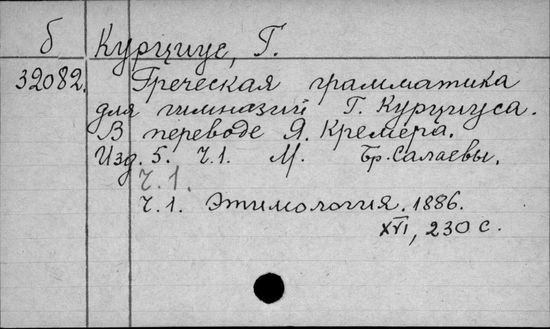 б Курциус, Г.
32082. Греческая грамматика
для гимназий Г. Курциуса.
В переводе Я. Кремера.
Изд. 5. Ч.1. М. Бр. Салаевы.
Ч.1.
Ч.1. Этимология. 1886.
XVI, 230 с.